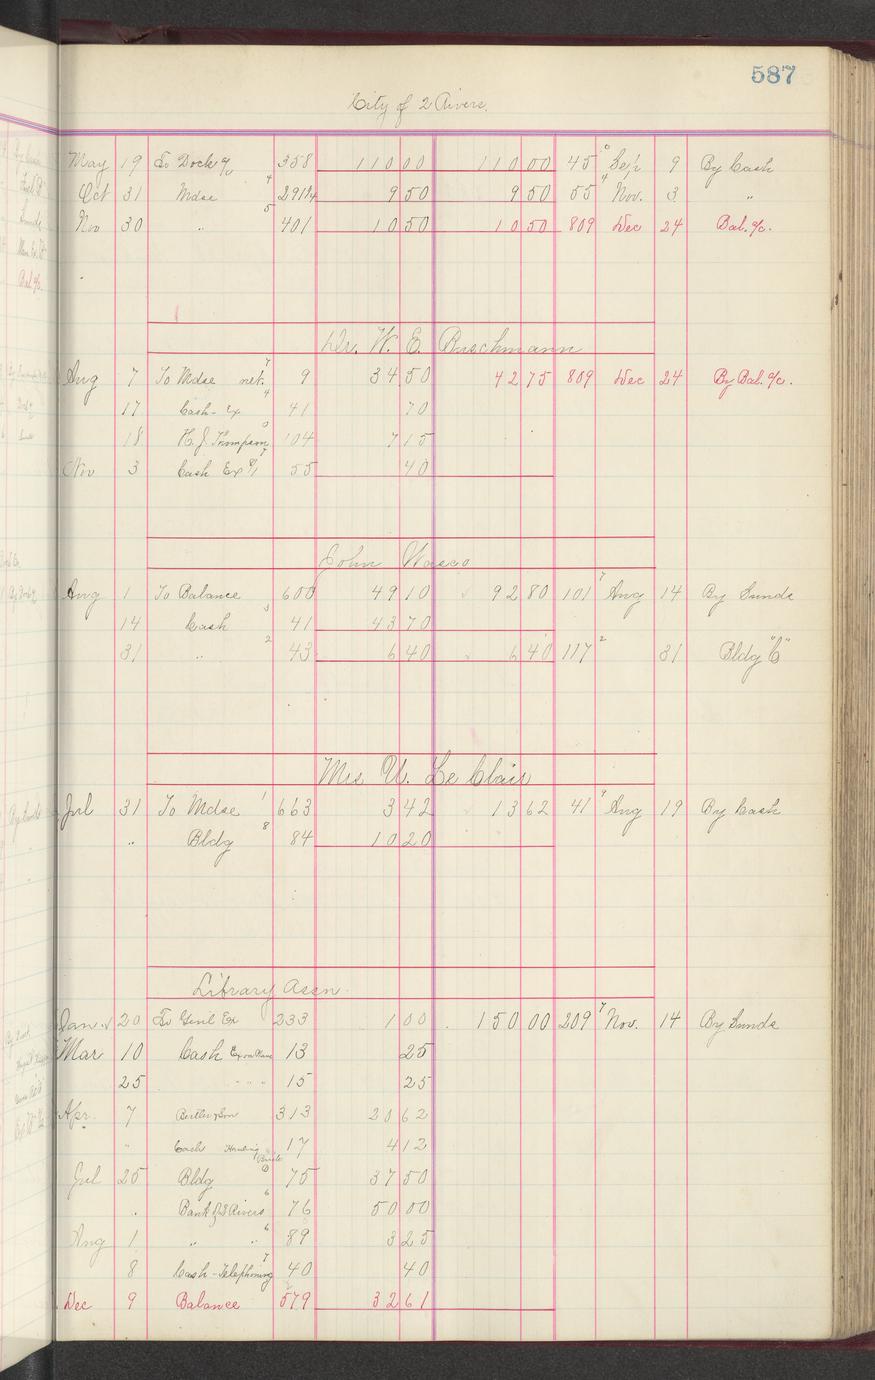 587
City of 2 Rivers.
May 19 To Dock % 358 110 00 110 00 45 Sep 9 By Cash
Oct 31 Mdse 291 1/4 9 50 9 50 55 Nov. 3 "
Nov 30 " 401 10 50 10 50 809 Dec 24 Bal. a/c.
Dr. W. E. Buschmann
Aug 7 To Mdse net. 9 34 50 42 75 809 Dec 24 By Bal. a/c.
17 Cash - Ex 41 70
18 H. J. Thompson 104 7 15
Nov 3 Cash Ex 55 40
John Wasco
Aug 1 To Balance 600 49 10 92 80 101 Aug 14 By Sunds
14 Cash 41 43 70
31 " 43 6 40 6 40 117 31 Bldg "C"
Mrs U. Le Clair
Jul 31 To Mdse 663 3 42 13 62 41 Aug 19 By Cash
" Bldg 84 10 20
Library Assn.
Jan. 20 To Genl Ex 233 1 00 150 00 209 Nov. 14 By Sunds
Mar 10 Cash 13 25
25 " " " 15 25
Apr. 7 313 20 62
" Cash Hauling Brick 17 4 12
Jul 25 Bldg 75 37 50
" Bank of 2 Rivers 76 50 00
Aug 1 " " 89 3 25
8 Cash - Telephoning 40 40
Dec 9 Balance 579 32 61